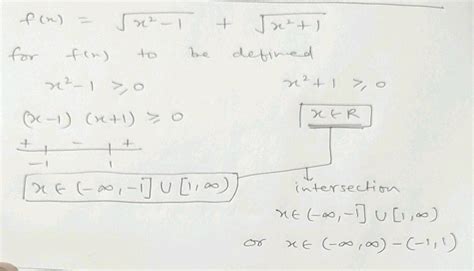 f(x) = √(x²-1) + √(x²+1)
for f(x) to be defined
x²-1 ⩾ 0 x²+1 ⩾ 0
(x-1) (x+1) ⩾ 0 x ∈ R
+ - +
-1 1
x ∈ (-∞, -1] ∪ [1, ∞)
intersection
x ∈ (-∞, -1] ∪ [1, ∞)
or x ∈ (-∞, ∞) - (-1, 1)